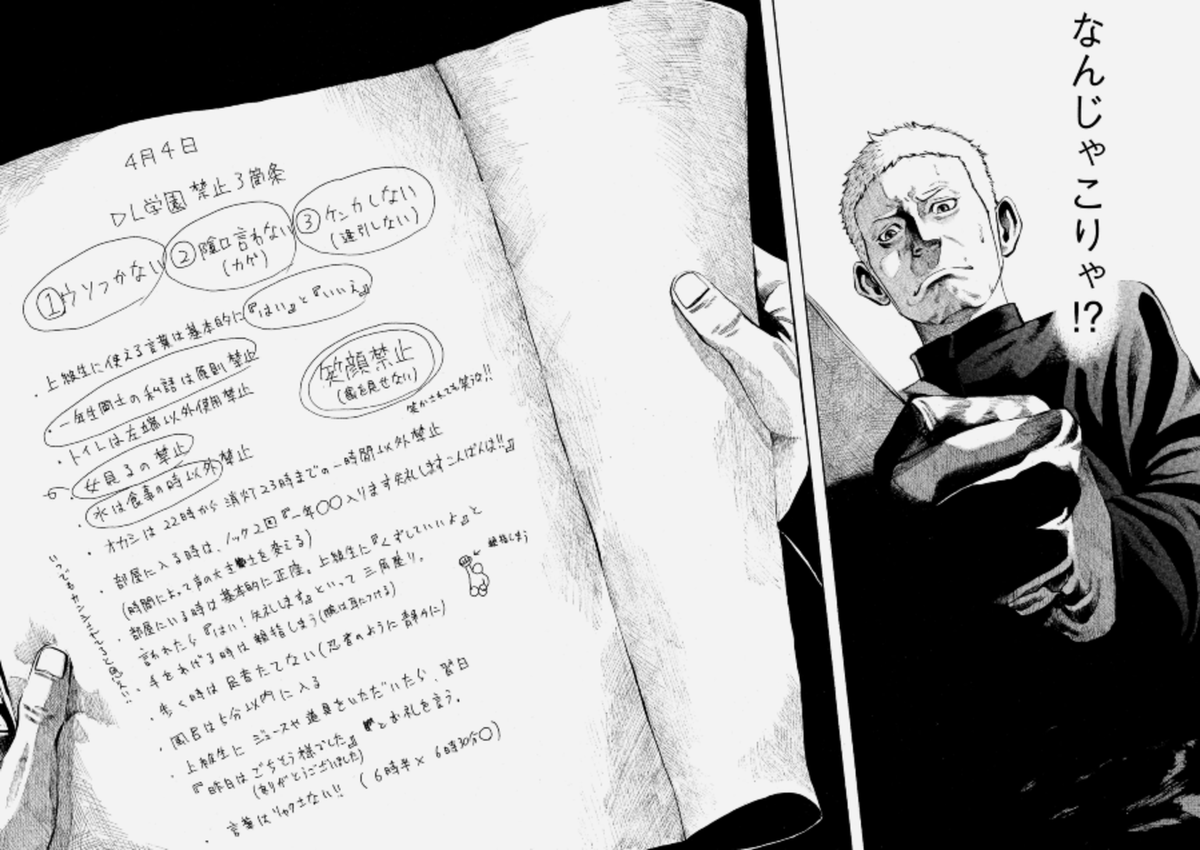 4月4日
DL学園 禁止3箇条
①ウソつかない
②陰口言わない
(カゲ)
③ケンカしない
(逢引しない)
・上級生に使える言葉は基本的に『はい』と『いいえ』
・一年生同士の私語は原則禁止
笑顔禁止
(歯を見せない)
笑かされても笑うな!!
・トイレは左端以外使用禁止
・女見るの禁止
・水は食事の時以外禁止
・オカシは22時から消灯23時までの一時間以外禁止
・部屋に入る時は、ノック2回『一年〇〇入ります失礼しますこんばんは!!』
(時間によって声の大きさを変える)
・部屋にいる時は基本的に正座。上級生に『くずしていいよ』と
言われたら『はい!失礼します』といって三角座り。
・手をあげる時は親指しまう(腕は耳につける)
親指しまう
・歩く時は足音たてない(忍者のように静かに)
・風呂は5分以内に入る
・上級生にジュースや道具をいただいたら、翌日
『昨日はごちそう様でした』とお礼を言う。
(ありがとうございました)
・言葉はリャクさない!!(6時半× 6時30分〇)
なんじゃこりゃ!?